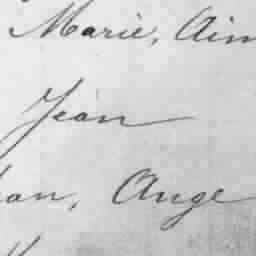 Marie, Aim
Jean
an, Ange